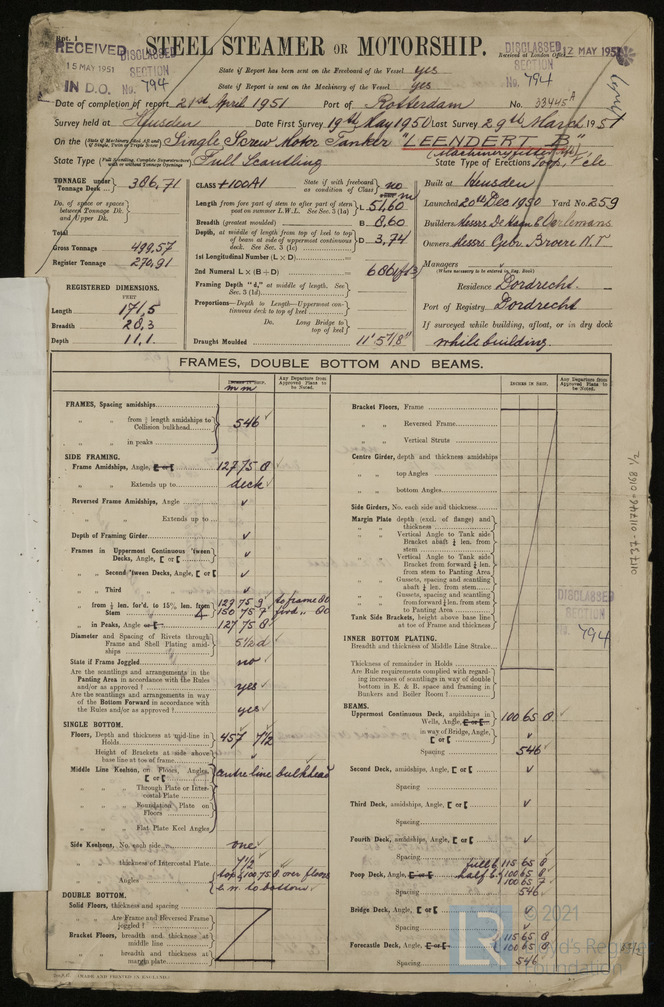 Rpt. 1
RECEIVED
15 MAY 1951
IN D.O.
DISCLASSED
SECTION
No. 794
STEEL STEAMER OR MOTORSHIP.
DISCLASSED
SECTION
No. 794
Received at London Office 12 MAY 1951
State if Report has been sent on the Freeboard of the Vessel yes
State if Report is sent on the Machinery of the Vessel yes
Date of completion of report 21st April 1951 Port of Rotterdam No. 33445A
Survey held at Heusden Date First Survey 19th May 1950 Last Survey 29th March 1951
On the Single Screw Motor Tanker "LEENDERT B"
(Machinery fitted aft)
State Type Full Scantling State Type of Erections Poop, F'cle
TONNAGE under Tonnage Deck 386,71
Do. of space or spaces between Tonnage Dk. and Upper Dk.
Total
Gross Tonnage 499,57
Register Tonnage 270,91
REGISTERED DIMENSIONS.
FEET
Length 171,5
Breadth 28,3
Depth 11,1
CLASS +100A1 State if with freeboard as condition of Class no
Length from fore part of stem to after part of stern post on summer L.W.L. See Sec. 3 (1a) L 51,60
Breadth (greatest moulded) B 8,60
Depth, at middle of length from top of keel to top of beams at side of uppermost continuous deck. See Sec. 3 (1c) D 3,74
1st Longitudinal Number (L × D)
2nd Numeral L × (B + D)
Framing Depth "d," at middle of length. See Sec. 3 (1d)
Proportions—Depth to Length—Uppermost continuous deck to top of keel
Do. Long Bridge to top of keel
Draught Moulded 11' 5 7/8"
Built at Heusden
Launched 20th Dec 1950 Yard No. 259
Builders Messrs De Haan & Oerlemans
Owners Messrs Gebr Broere N.V.
Managers
(Where necessary to be entered in Reg. Book)
Residence Dordrecht
Port of Registry Dordrecht
If surveyed while building, afloat, or in dry dock
while building.
FRAMES, DOUBLE BOTTOM AND BEAMS.
INCHES IN SHIP.
mm
Any Departure from Approved Plans to be Noted.
INCHES IN SHIP.
Any Departure from Approved Plans to be Noted.
FRAMES, Spacing amidships
" " from ⅕ length amidships to Collision bulkhead 546
" " in peaks
SIDE FRAMING.
Frame Amidships, Angle, [ or [ 127 75 8
" " Extends up to deck
Reversed Frame Amidships, Angle
" " Extends up to
Depth of Framing Girder
Frames in Uppermost Continuous 'tween Decks, Angle, [ or [
" " Second 'tween Decks, Angle, [ or [
" " Third
" " from ⅕ len. for'd. to 15% len. from Stem
" " in Peaks, Angle or [ 127 75 8
Diameter and Spacing of Rivets through Frame and Shell Plating amidships
State if Frame Joggled no
Are the scantlings and arrangements in the Panting Area in accordance with the Rules and/or as approved ? yes
Are the scantlings and arrangements in way of the Bottom Forward in accordance with the Rules and/or as approved ? yes
SINGLE BOTTOM.
Floors, Depth and thickness at mid-line in Holds 457 7½
Height of Brackets at side above base line at toe of frame
Middle Line Keelson, on Floors, Angles, [ or [ centre line bulkhead
" " Through Plate or Intercostal Plate
" " Foundation Plate on Floors
" " Flat Plate Keel Angles
Side Keelsons, No. each side one
" " thickness of Intercostal Plate 7½
" " Angles top 100 75 8 over floors
DOUBLE BOTTOM.
Solid Floors, thickness and spacing
" " Are Frame and Reversed Frame joggled ?
Bracket Floors, breadth and thickness at middle line
" " breadth and thickness at margin plate
Bracket Floors, Frame
" " Reversed Frame
" " Vertical Struts
Centre Girder, depth and thickness amidships
" " top Angles
" " bottom Angles
Side Girders, No. each side and thickness
Margin Plate depth (excl. of flange) and thickness
" " Vertical Angle to Tank side Bracket abaft ¼ len. from stem
" " Vertical Angle to Tank Side Bracket from forward ¼ len. from stem to Panting Area
" " Gussets, spacing and scantling abaft ¼ len. from stem
" " Gussets, spacing and scantling from forward ¼ len. from stem to Panting Area
Tank Side Brackets, height above base line at toe of Frame and thickness
INNER BOTTOM PLATING.
Breadth and thickness of Middle Line Strake
Thickness of remainder in Holds
Are Rule requirements complied with regarding increases of scantlings in way of double bottom in E. & B. space and framing in Bunkers and Boiler Room ?
BEAMS.
Uppermost Continuous Deck, amidships in Wells, Angle, [ or [ 100 65 8
" " in way of Bridge, Angle, [ or [
Spacing 546
Second Deck, amidships, Angle, [ or [
Spacing
Third Deck, amidships, Angle, [ or [
Spacing
Fourth Deck, amidships, Angle, [ or [
Spacing
Poop Deck, Angle, [ or [ full b. 115 65 8
half b. 100 65 8
100 65 7
Spacing 546
Bridge Deck, Angle, [ or [
Spacing
Forecastle Deck, Angle, [ or [ 115 65 8
100 65 8
Spacing 546
DISCLASSED
SECTION
No. 794
011710-011749-0168 1/2
LR
© 2021
Lloyd's Register
Foundation